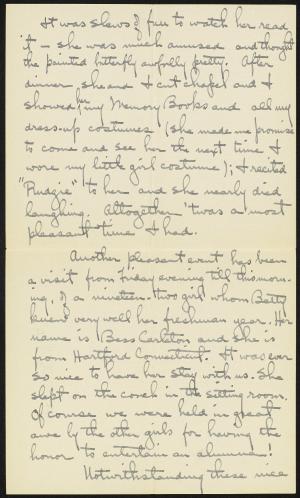 It was slews of fun to watch her read
it – she was much amused and thought
the painted butterfly awfully pretty. After
dinner she and I cut chapel and I
showed her my Memory Books and all my
dress-up costumes (she made me promise
to come and see her the next time I
wore my little girl costume); I recited
"Pudgie" to her and she nearly died
laughing. Altogether 'twas a most
pleasant time I had.
Another pleasant event has been
a visit from Friday evening till this morn-
ing, of a nineteen-two girl whom Betty
knew very well her freshman year. Her
name is Bess Carleton and she is
from Hartford Connecticut. It was ever
so nice to have her stay with us. She
slept on the couch in the sitting room.
Of course we were held in great
awe by the other girls for having the
honor to entertain an alumna!
Notwithstanding these nice